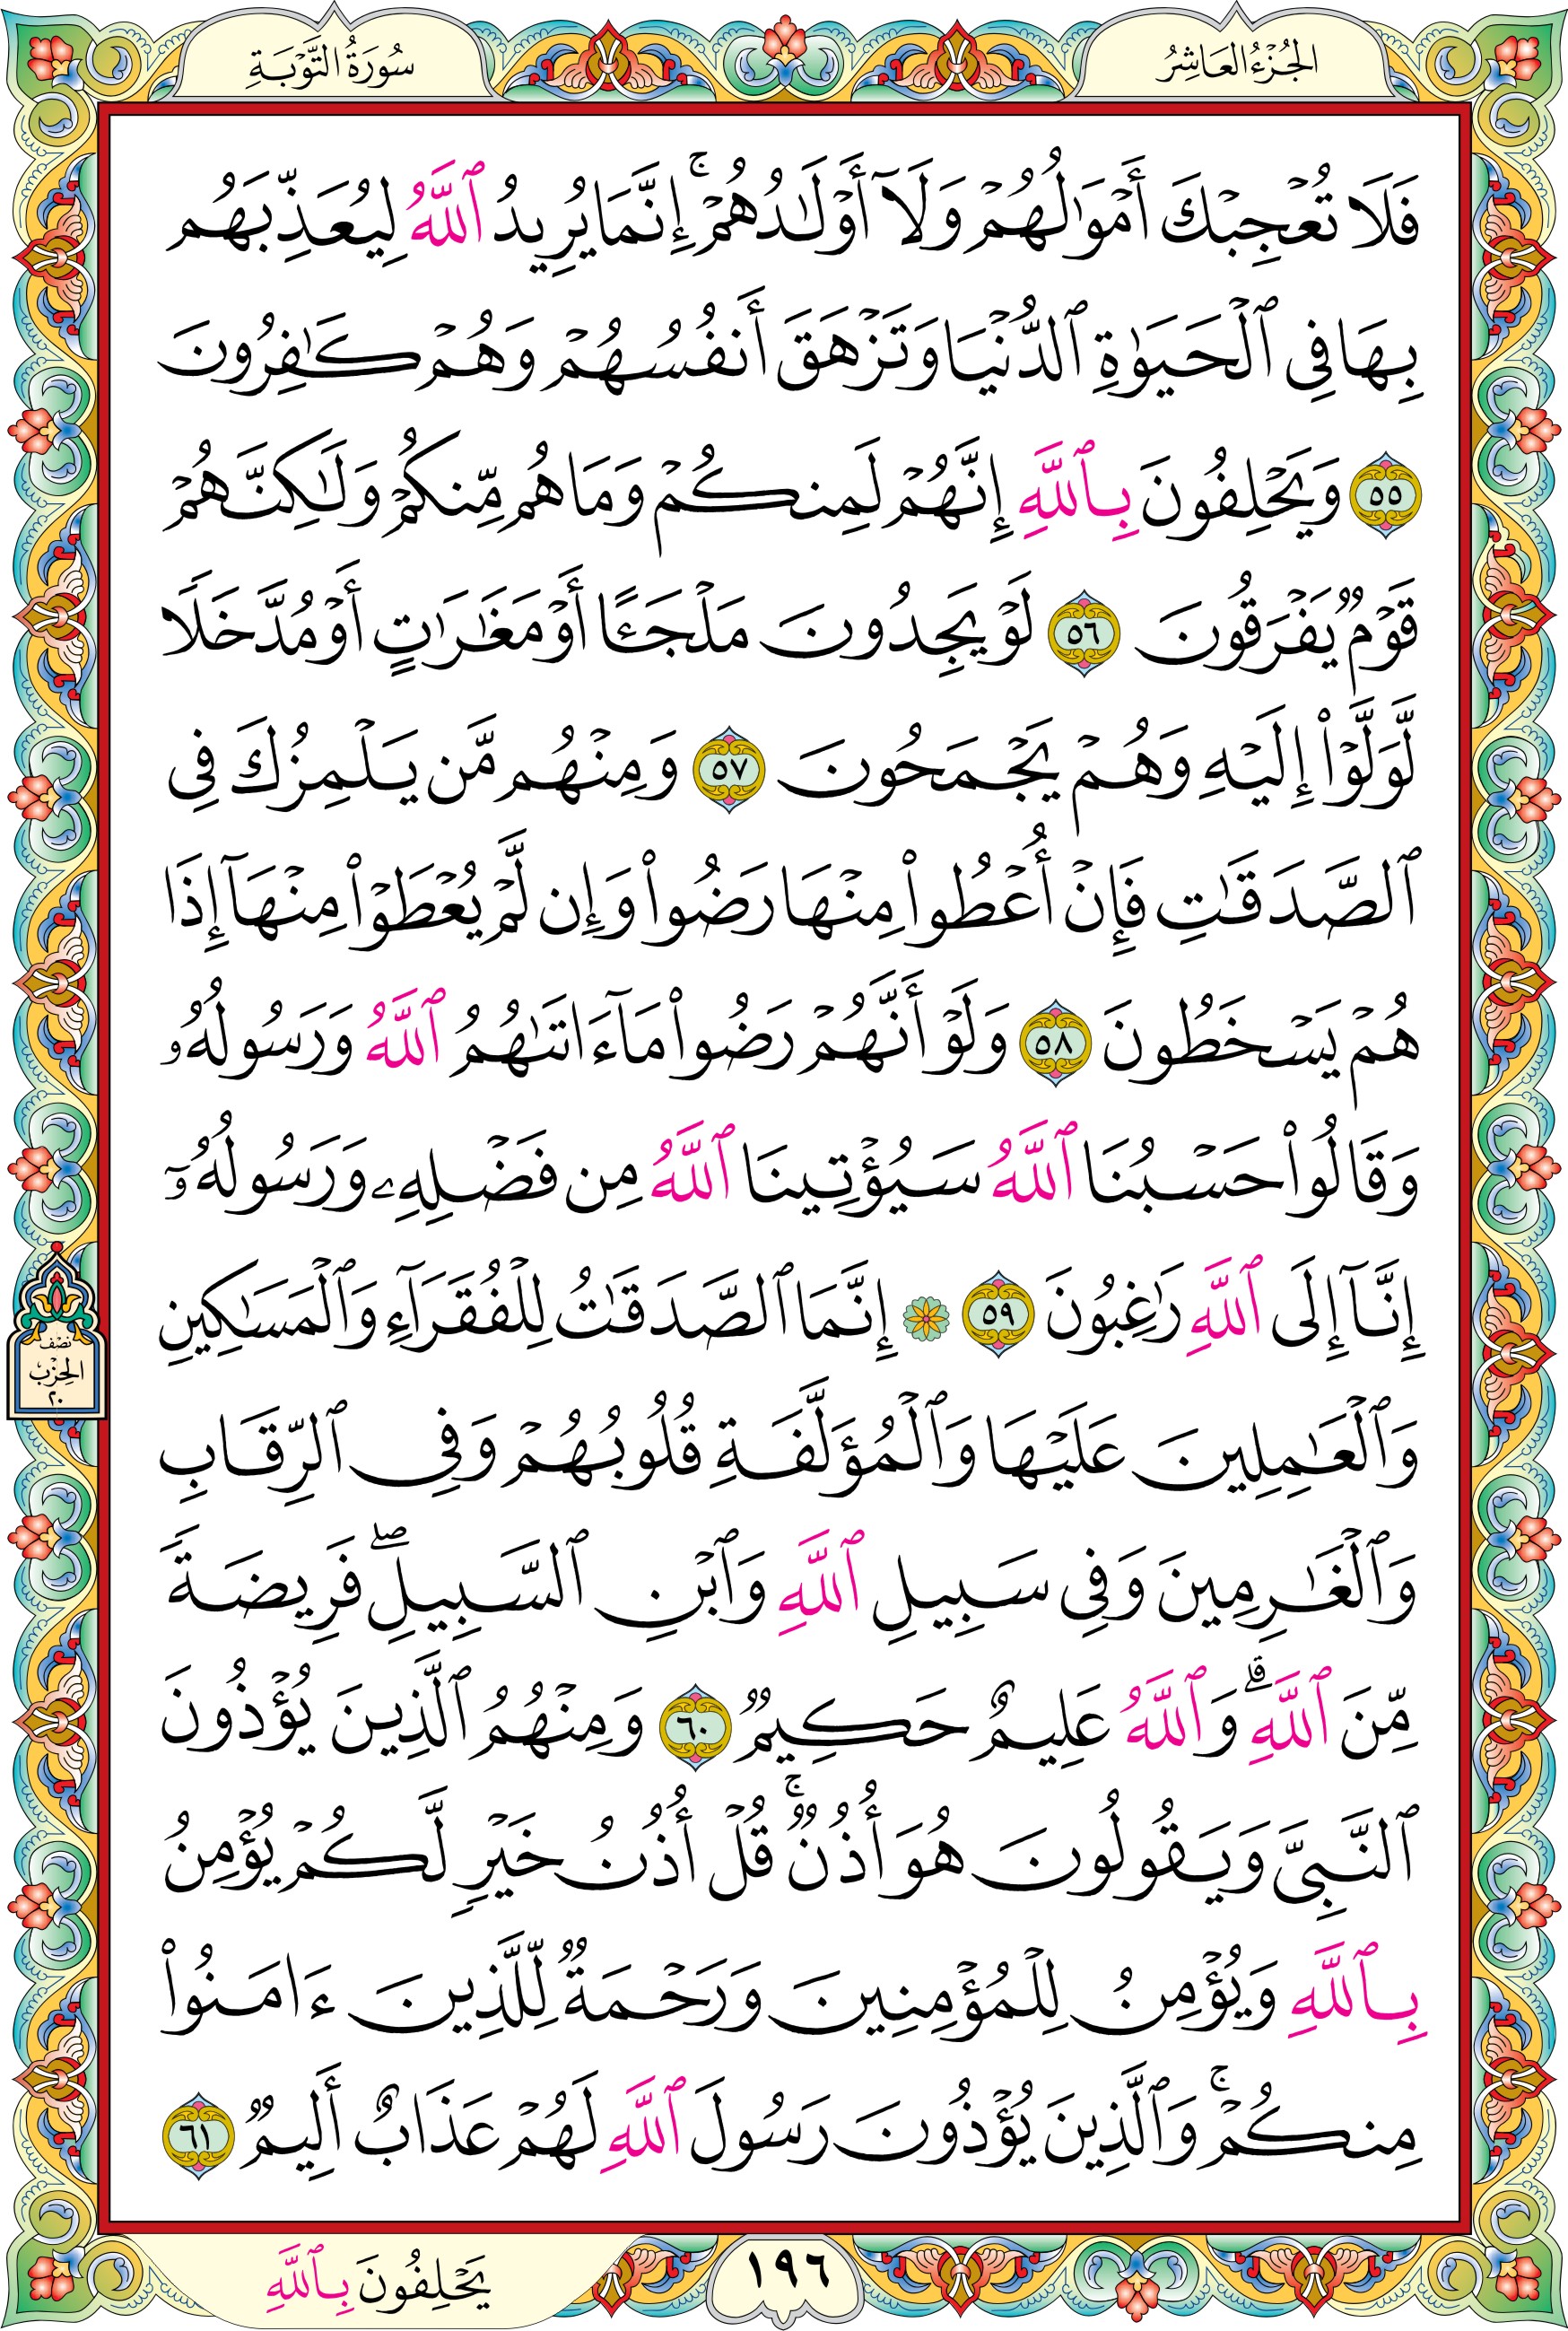 الجُزْءُ العَاشِرُ
سُورَةُ التَّوْبَةِ
فَلَا تُعْجِبْكَ أَمْوَٰلُهُمْ وَلَآ أَوْلَـٰدُهُمْ ۚ إِنَّمَا يُرِيدُ ٱللَّهُ لِيُعَذِّبَهُم
بِهَا فِى ٱلْحَيَوٰةِ ٱلدُّنْيَا وَتَزْهَقَ أَنفُسُهُمْ وَهُمْ كَـٰفِرُونَ
٥٥ وَيَحْلِفُونَ بِٱللَّهِ إِنَّهُمْ لَمِنكُمْ وَمَا هُم مِّنكُمْ وَلَـٰكِنَّهُمْ
قَوْمٌ يَفْرَقُونَ ٥٦ لَوْ يَجِدُونَ مَلْجَـًٔا أَوْ مَغَـٰرَٰتٍ أَوْ مُدَّخَلًا
لَّوَلَّوْا۟ إِلَيْهِ وَهُمْ يَجْمَحُونَ ٥٧ وَمِنْهُم مَّن يَلْمِزُكَ فِى
ٱلصَّدَقَـٰتِ فَإِنْ أُعْطُوا۟ مِنْهَا رَضُوا۟ وَإِن لَّمْ يُعْطَوْا۟ مِنْهَآ إِذَا
هُمْ يَسْخَطُونَ ٥٨ وَلَوْ أَنَّهُمْ رَضُوا۟ مَآ ءَاتَىٰهُمُ ٱللَّهُ وَرَسُولُهُۥ
وَقَالُوا۟ حَسْبُنَا ٱللَّهُ سَيُؤْتِينَا ٱللَّهُ مِن فَضْلِهِۦ وَرَسُولُهُۥٓ
إِنَّآ إِلَى ٱللَّهِ رَٰغِبُونَ ٥٩ ۞ إِنَّمَا ٱلصَّدَقَـٰتُ لِلْفُقَرَآءِ وَٱلْمَسَـٰكِينِ
نصف
الحزب
٢٠
وَٱلْعَـٰمِلِينَ عَلَيْهَا وَٱلْمُؤَلَّفَةِ قُلُوبُهُمْ وَفِى ٱلرِّقَابِ
وَٱلْغَـٰرِمِينَ وَفِى سَبِيلِ ٱللَّهِ وَٱبْنِ ٱلسَّبِيلِ ۖ فَرِيضَةً
مِّنَ ٱللَّهِ ۗ وَٱللَّهُ عَلِيمٌ حَكِيمٌ ٦٠ وَمِنْهُمُ ٱلَّذِينَ يُؤْذُونَ
ٱلنَّبِىَّ وَيَقُولُونَ هُوَ أُذُنٌ ۚ قُلْ أُذُنُ خَيْرٍ لَّكُمْ يُؤْمِنُ
بِٱللَّهِ وَيُؤْمِنُ لِلْمُؤْمِنِينَ وَرَحْمَةٌ لِّلَّذِينَ ءَامَنُوا۟
مِنكُمْ ۚ وَٱلَّذِينَ يُؤْذُونَ رَسُولَ ٱللَّهِ لَهُمْ عَذَابٌ أَلِيمٌ ٦١
١٩٦
يَحْلِفُونَ بِٱللَّهِ